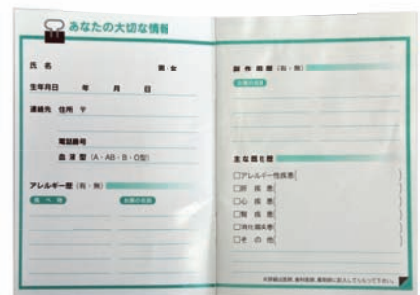 あなたの大切な情報
氏 名 男・女
生年月日 年 月 日
連絡先 住所 〒
電話番号
血液型(A・AB・B・O型)
アレルギー歴(有・無)
食べ物 お薬の名前
副作用歴(有・無)
お薬の名前
主な既往歴
□アレルギー性疾患( )
□肝 疾 患( )
□心 疾 患( )
□腎 疾 患( )
□消化器疾患( )
□そ の 他( )